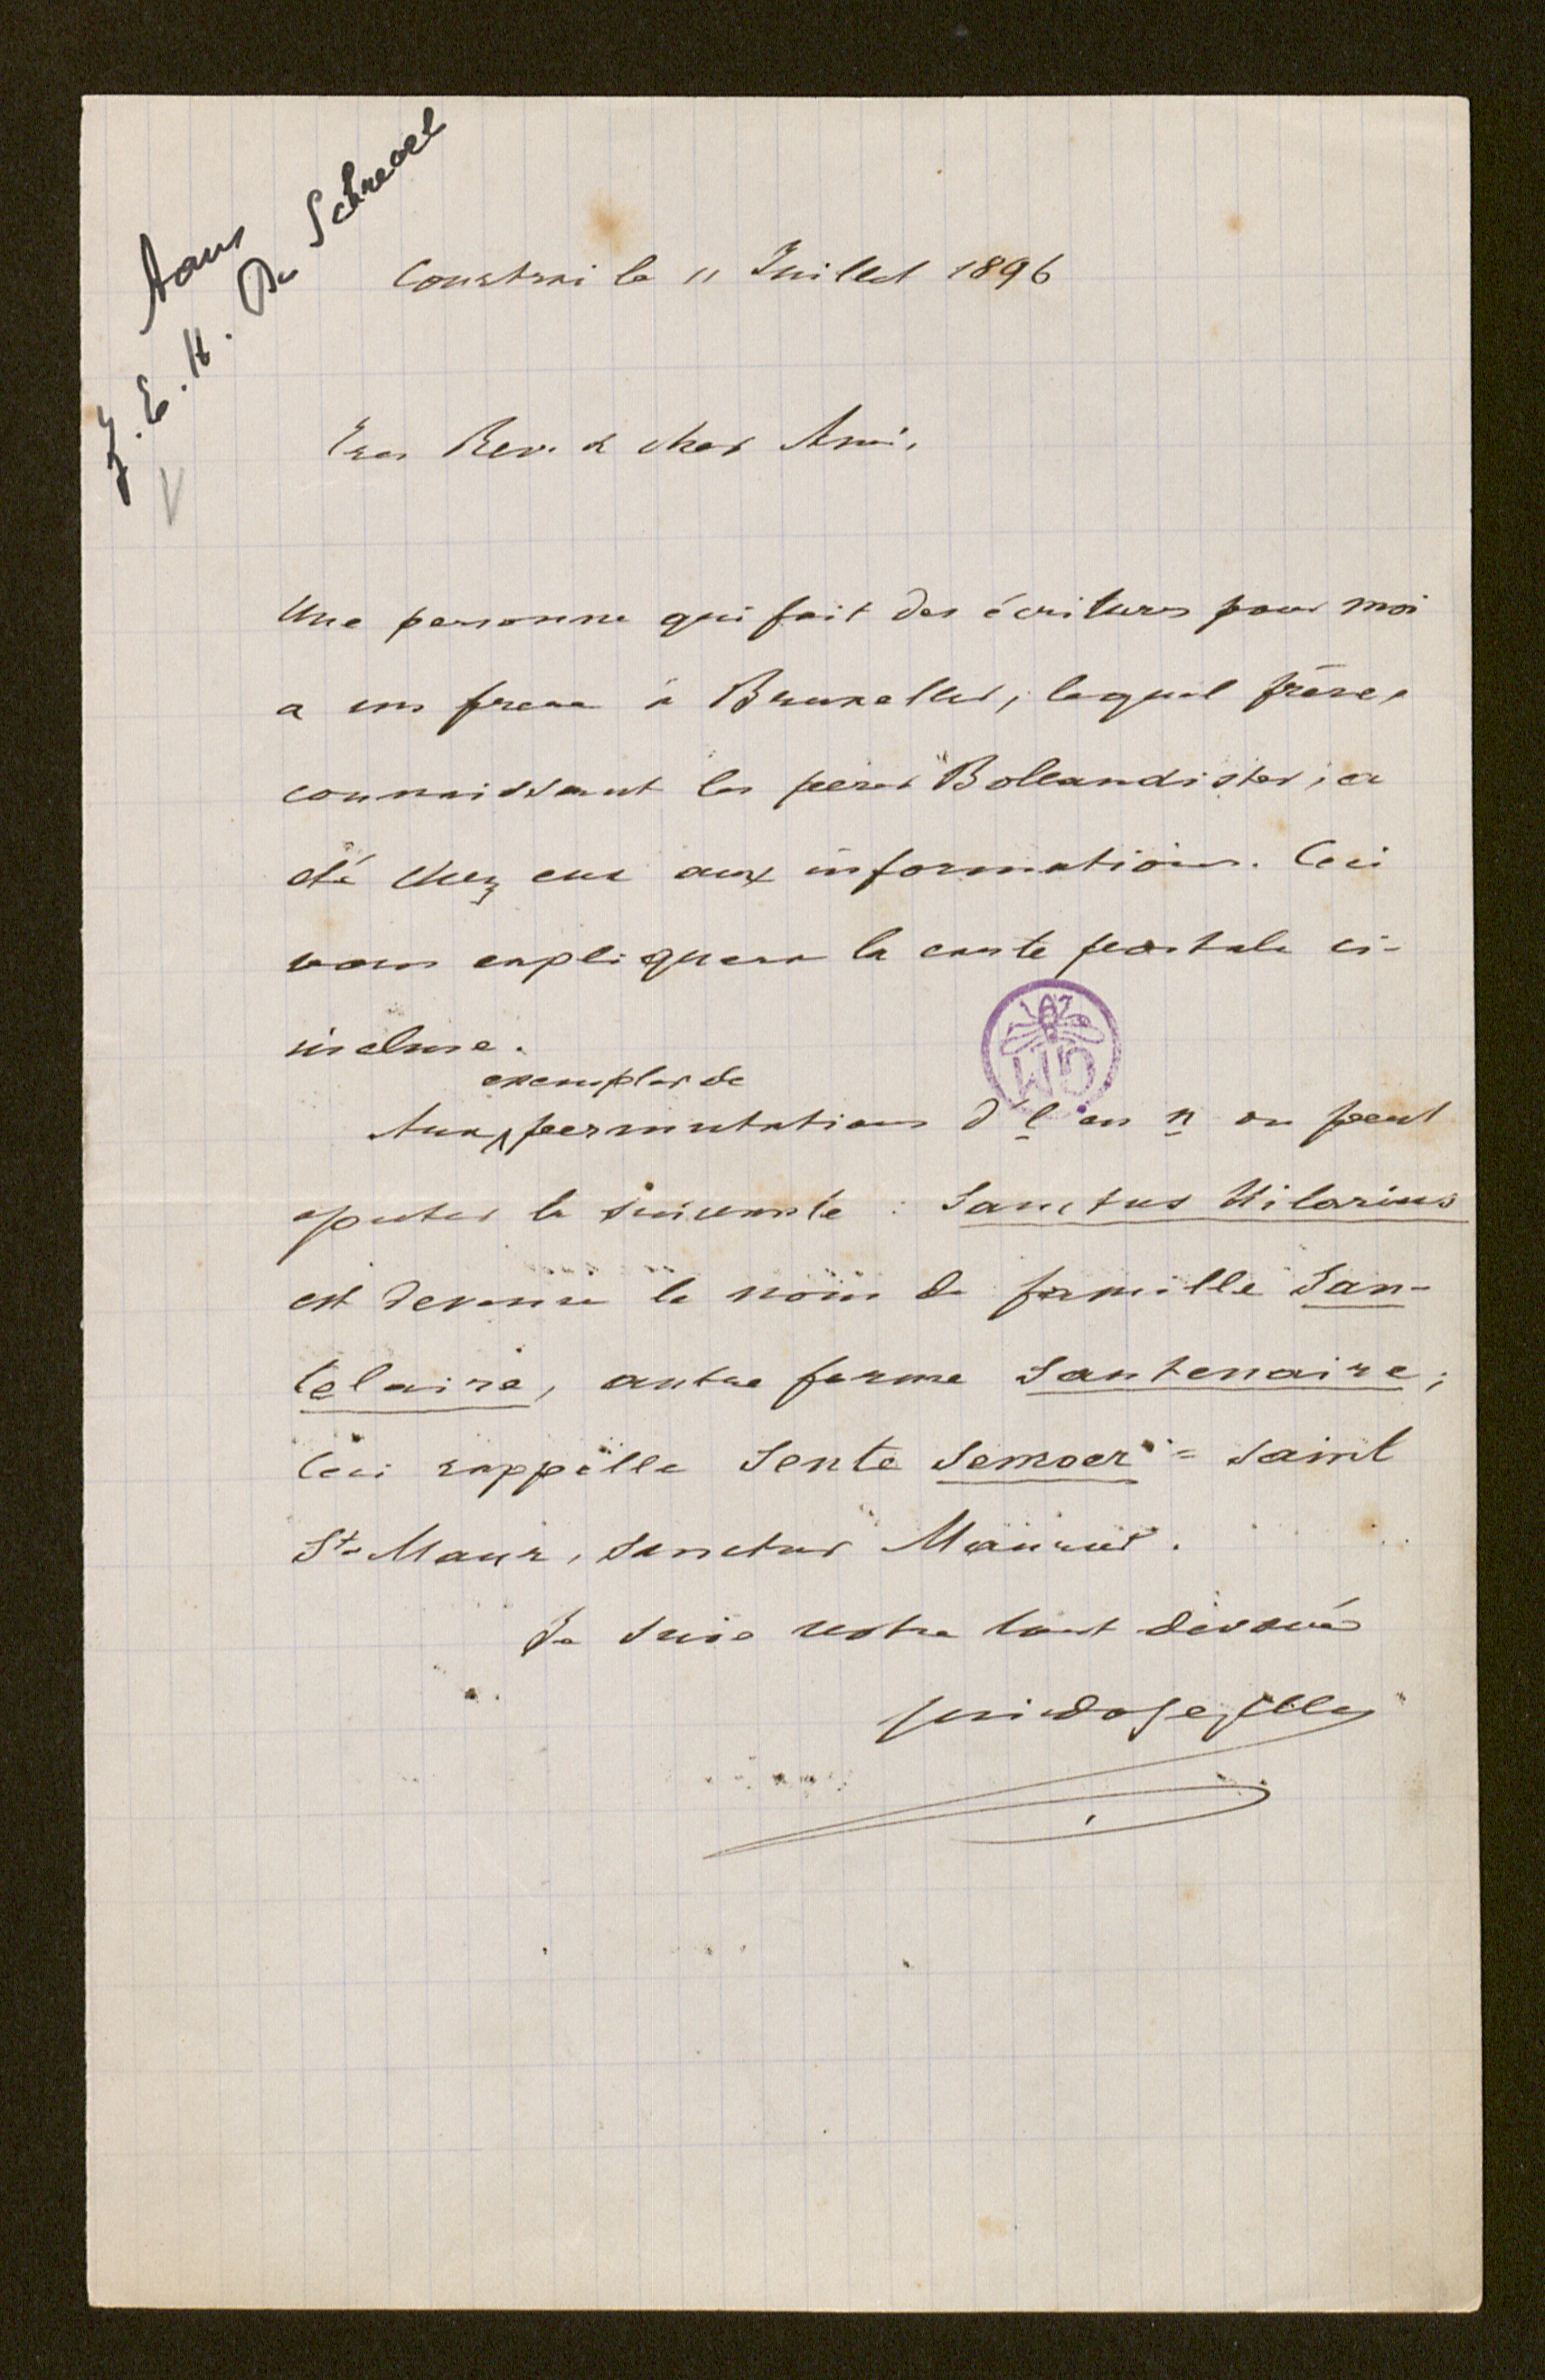 Aan
Z. E. H. De Schrevel
Courtrai le 11 Juillet 1896
Tres Rev. & cher Ami,
Une personne qui fait des écritures pour moi
a un frere à Bruxelles, lequel frère,
connaissant les peres Bollandistes, a
été chez eux aux informations. Ceci
vous expliquera la carte postale ci-
incluse.
exemples de
Aux permutations d'l en n on peut
ajouter la suivante : Sanctus Hilarius
est devenu le nom de famille San-
telaire, autre forme Santenaire;
Ceci rappelle Sente Semoer = Saint
St. Maur, Sanctus Maurus.
Je suis votre tout dévoué
Guido Gezelle